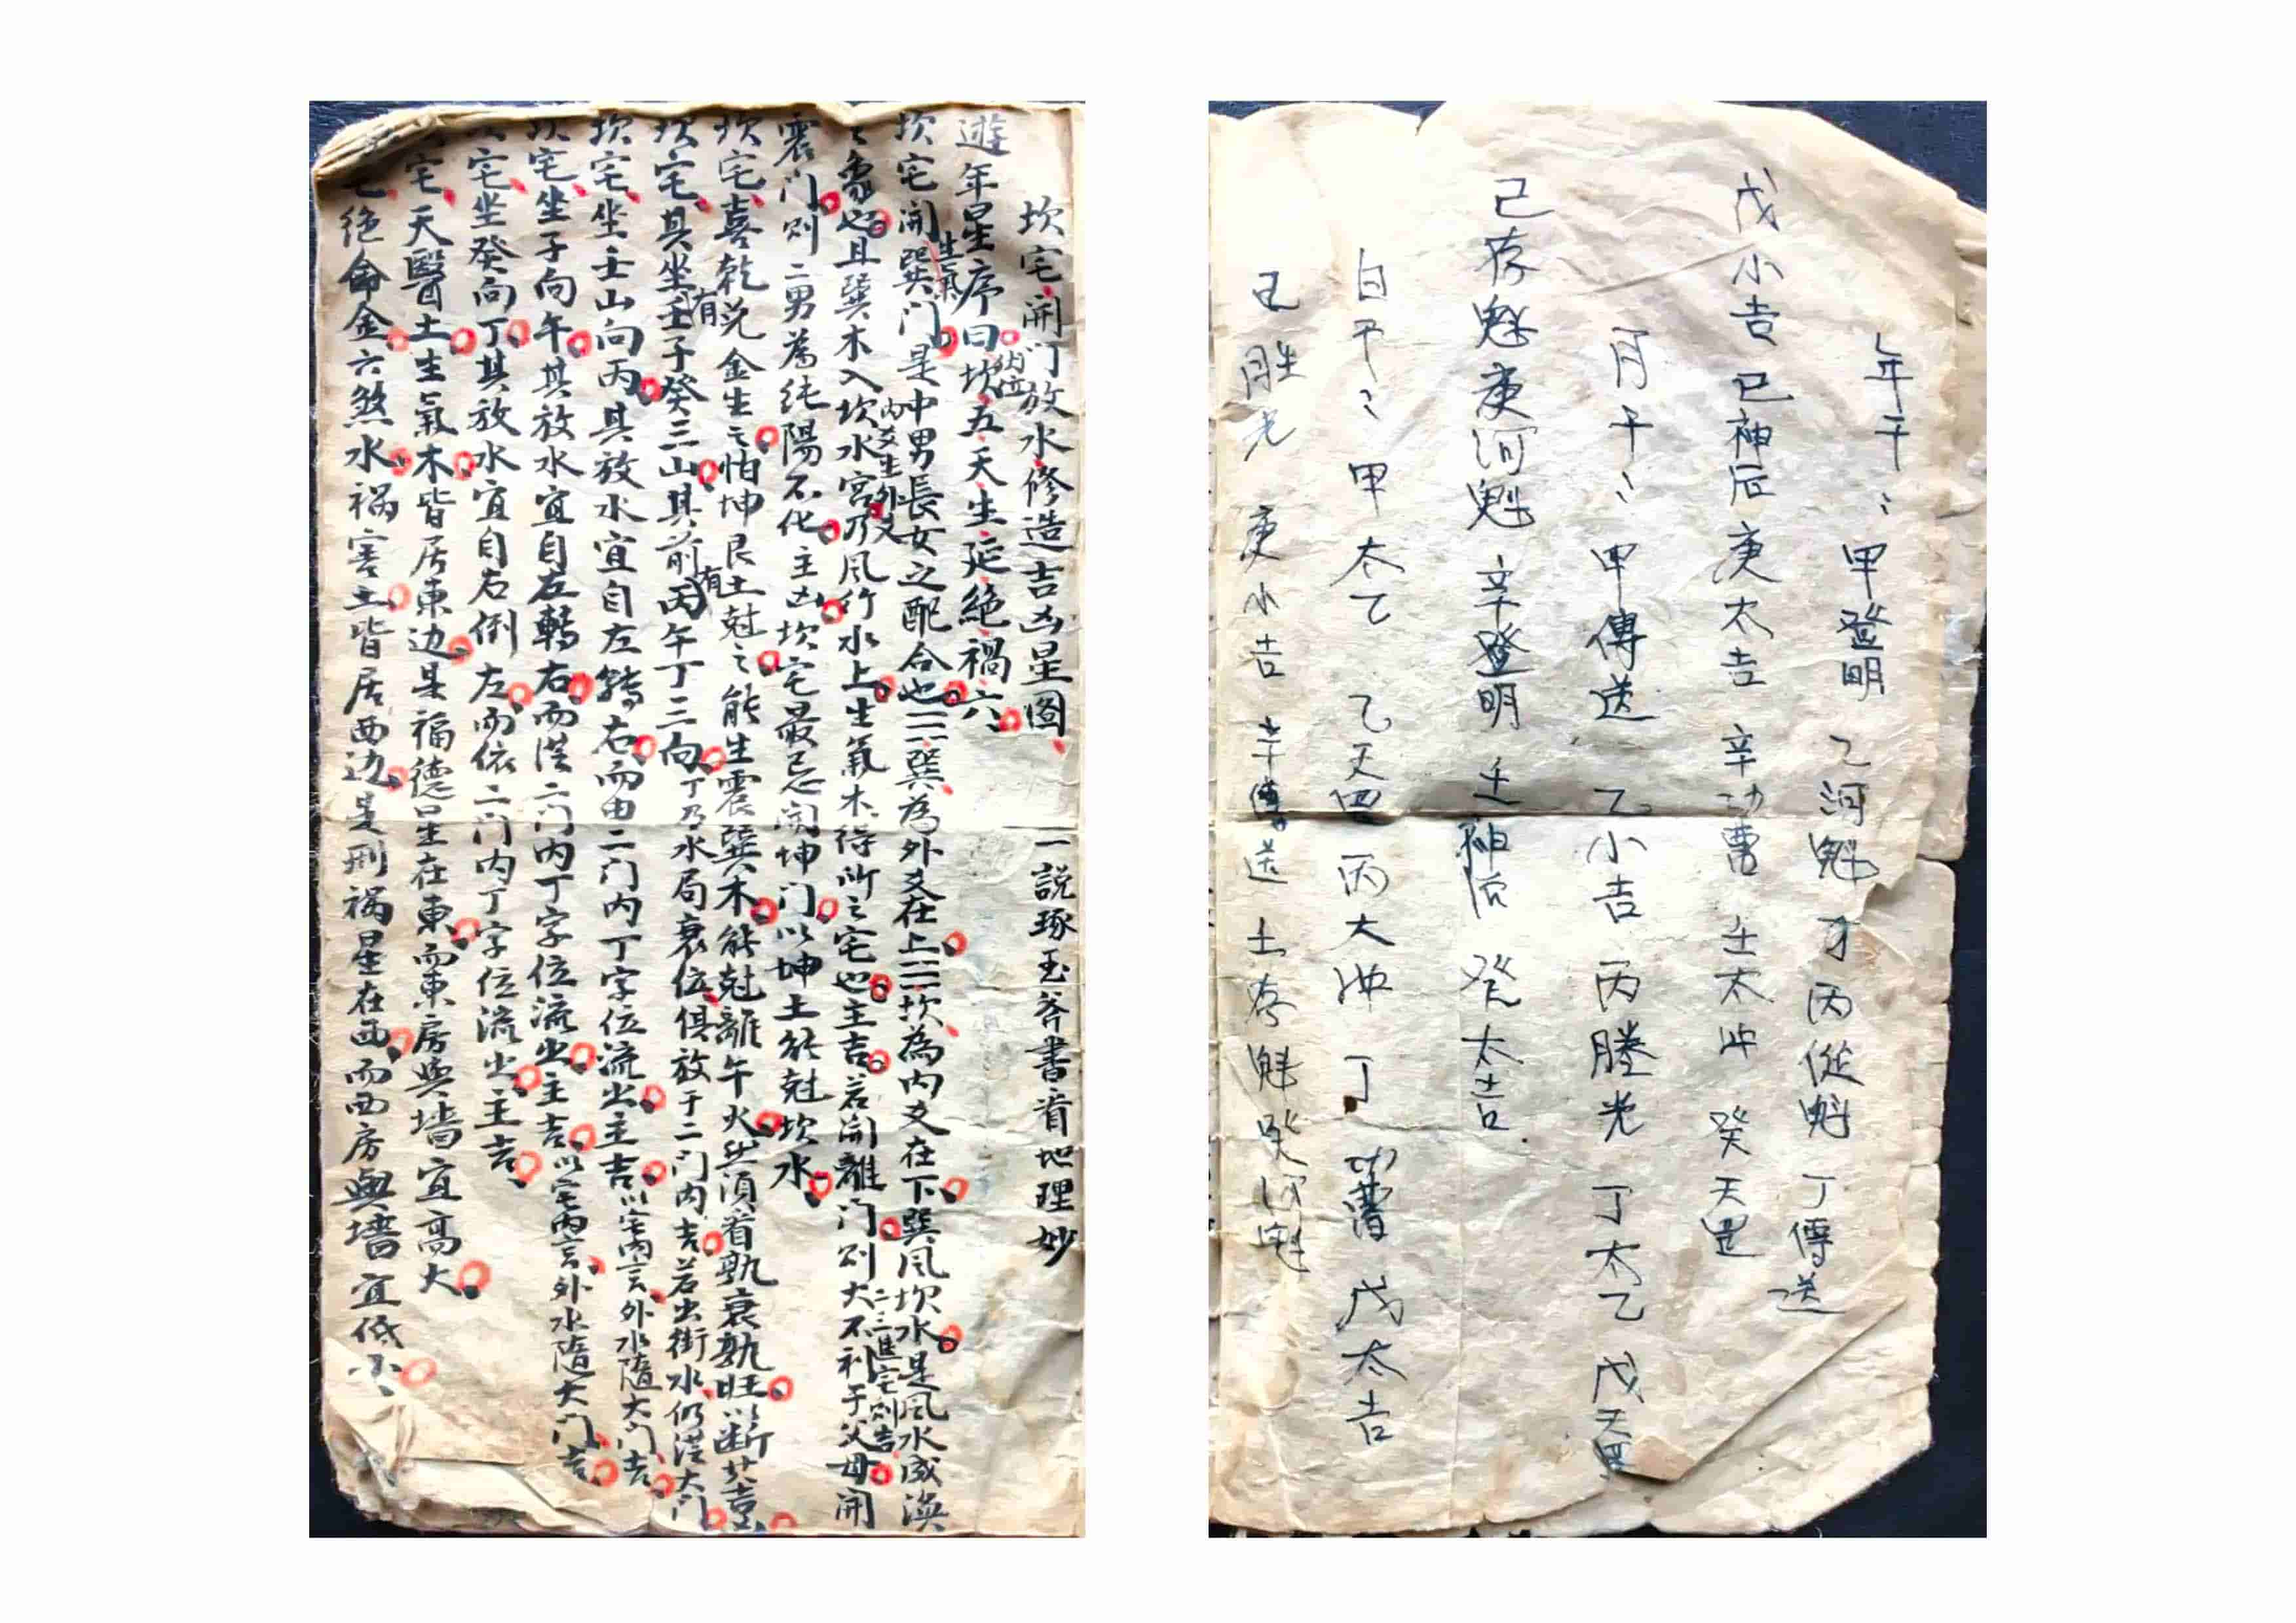 年干：甲登明 乙河魁 丙從魁 丁傳送
戊小吉 己神后 庚太吉 辛功曹 壬太冲 癸天罡
月干：甲傳送 乙小吉 丙勝光 丁太乙 戊天罡
己存魁 庚河魁 辛登明 壬神后 癸太吉
日干：甲太乙 乙天罡 丙大冲 丁功曹 戊太吉
胜光 庚小吉 辛傳送 士存魁 癸河魁
坎宅開门放水修造吉凶星图 一說琢玉斧書眉地理妙
遊年星序曰坎五天生延絕禍六
納位
坎宅開巽门是中男長女之配合也☴巽為外爻在上☵坎為内爻在下巽風坎水是風水成渙
生氣
之象也且巽木入坎水宮乃風行水上生氣木得所之宅也主吉若開離门則大不利于父母開
内爻生外爻 二三進宅則吉
震门則二男為純陽不化主凶坎宅最忌開坤门以坤土能尅坎水
坎宅喜乾兌金生之怕坤艮土尅之能生震巽木能尅離午火然須看孰衰孰旺以断其吉凶
坎宅其坐有壬子癸三山其前有丙午丁三向丁乃水局衰位俱放于二门内吉若出街水仍從大门
坎宅坐壬山向丙其放水宜自左轉右而由二门内丁字位流出主吉以宅内言外水隨大门吉
坎宅坐子向午其放水宜自左轉右而從二门内丁字位流出主吉以宅内言外水隨大门吉
宅坐癸向丁其放水宜自右倒左而依二门内丁字位流出主吉
宅天醫土生氣木皆居東边是福德星在東而東房與墙宜高大
宅绝命金六煞水禍害土皆居西边是刑禍星在西而西房與墙宜低小